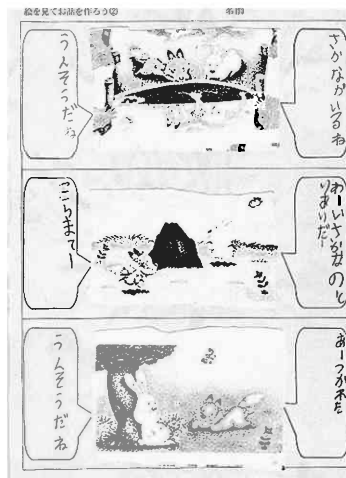 絵を見てお話を作ろう② 名前
さかながいるね
うんそうだね
わーいさかなのと
りあいだー
こらまてー
あーつかれた
うんそうだね